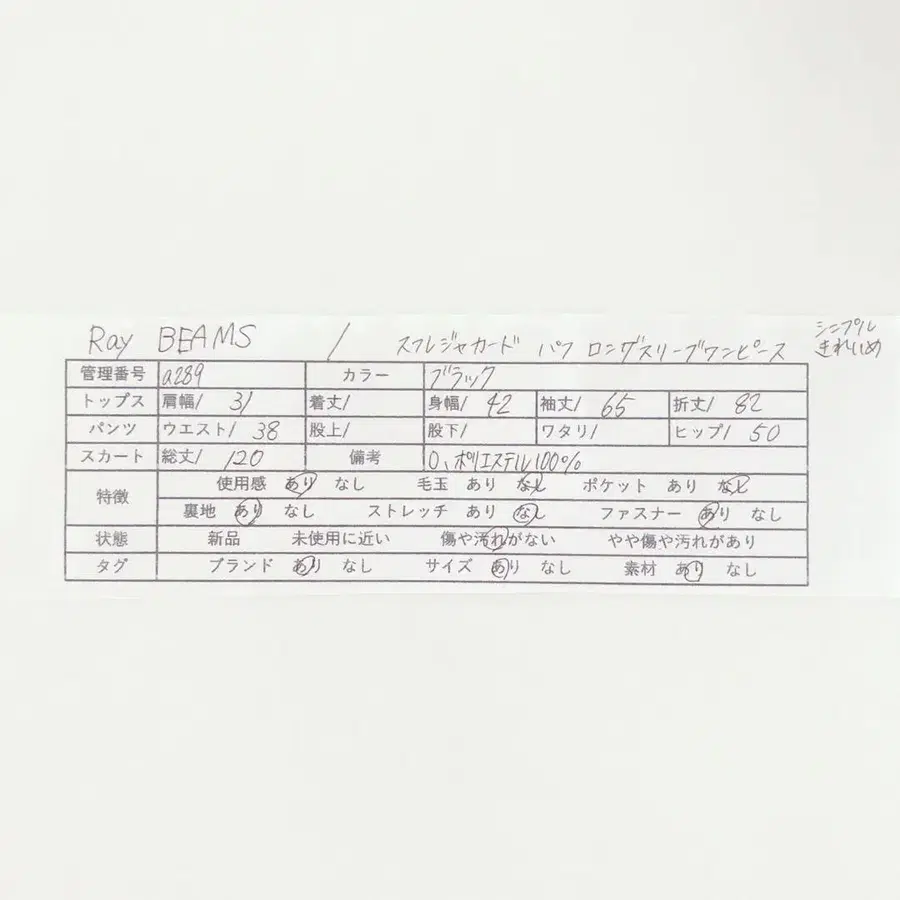 Ray BEAMS / スフレジャカード パフ ロングスリーブワンピース
シンプル
きれいめ
管理番号 a289 カラー ブラック
トップス 肩幅/ 31 着丈/ 身幅/ 42 袖丈/ 65 裄丈/ 82
パンツ ウエスト/ 38 股上/ 股下/ ワタリ/ ヒップ/ 50
スカート 総丈/ 120 備考 0、ポリエステル100%
特徴 使用感 あり なし 毛玉 あり なし ポケット あり なし
裏地 あり なし ストレッチ あり なし ファスナー あり なし
状態 新品 未使用に近い 傷や汚れがない やや傷や汚れがあり
タグ ブランド あり なし サイズ あり なし 素材 あり なし